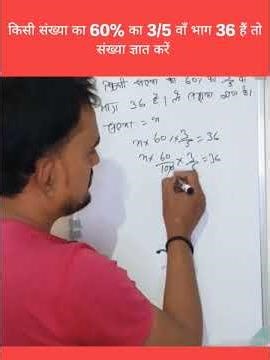 किसी संख्या का 60% का 3/5 वाँ भाग 36 हैं तो
संख्या ज्ञात करें
किसी संख्या का 60% का 3/5 वा
भाग 36 है। तो संख्या ज्ञात
संख्या = x
x × 60% × 3/5 = 36
x × 60/100 × 3/5 = 36